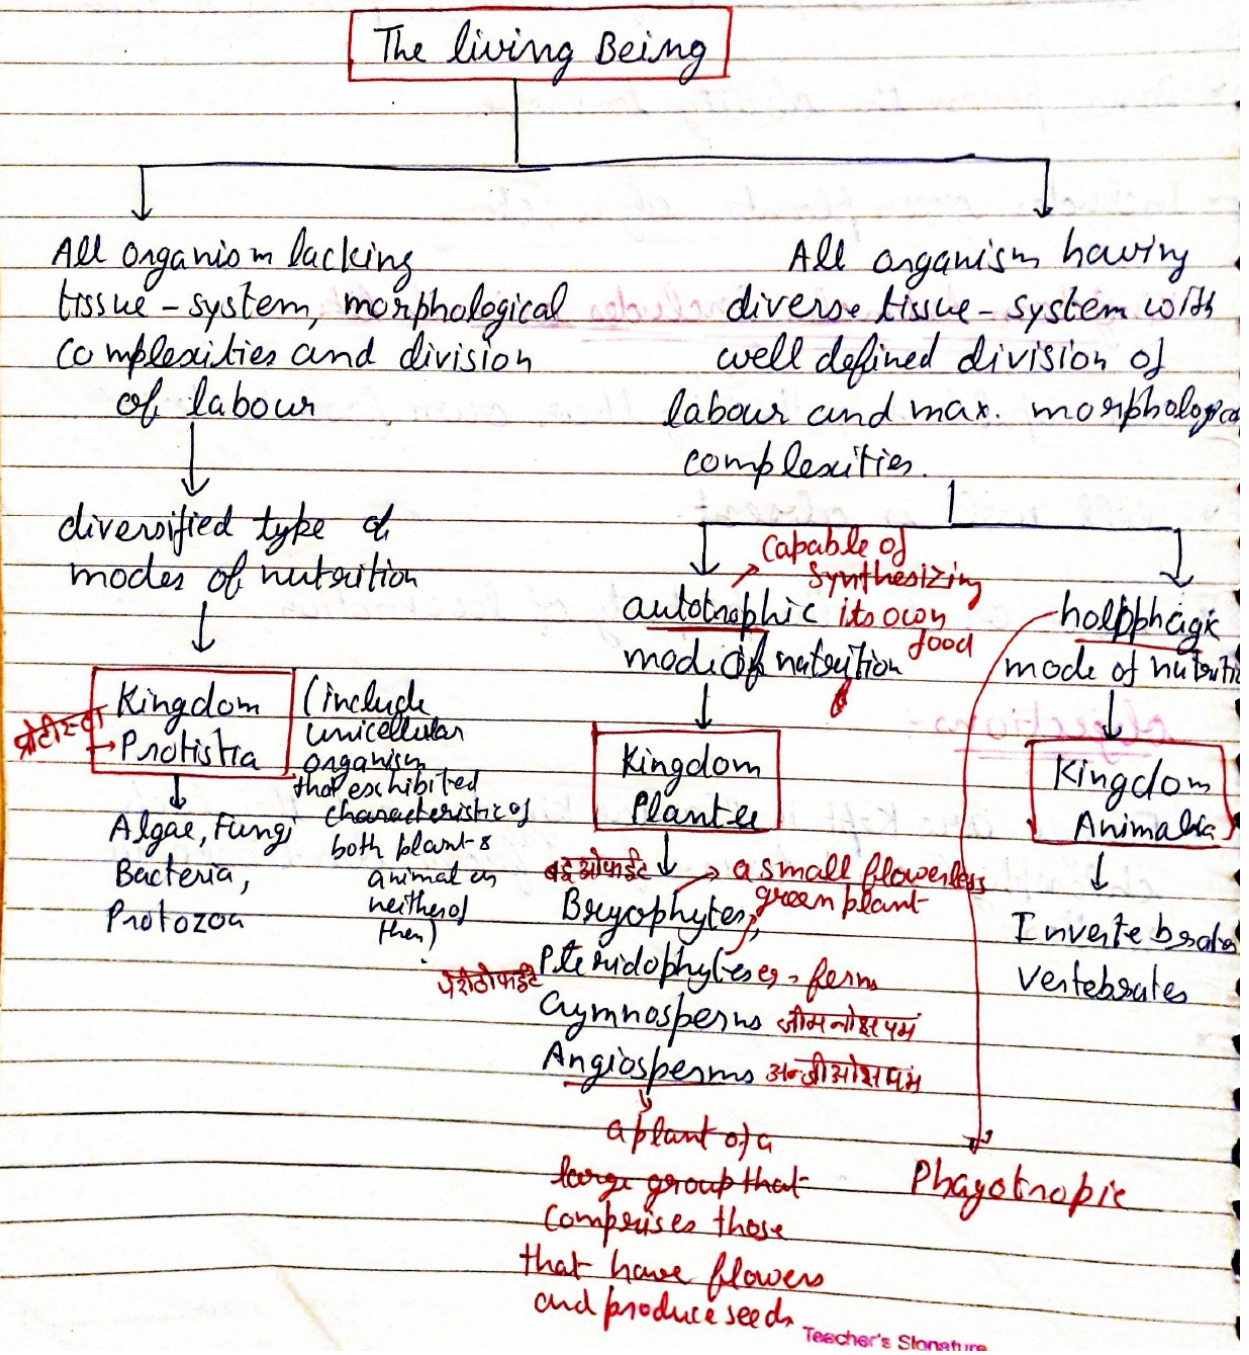 The living Being
All organism lacking
tissue - system, morphological
complexities and division
of labour
diversified type of
modes of nutrition
Kingdom
Protistia
प्रोटीस्टा
(include
unicellular
organism
that exhibited
characteristic of
both plant &
animal or
neither of
then)
Algae, Fungi
Bacteria,
Protozoa
All organism having
diverse tissue - system with
well defined division of
labour and max. morphological
complexities.
autotrophic
mode of nutrition
Capable of
synthesizing
its own
food
Kingdom
Plantee
Bryophytes,
a small flowerless
green plant
Pteridophytes
eg - ferm
Gymnosperms
Angiosperms
a plant of a
large group that
comprises those
that have flowers
and produce seeds
holophagic
mode of nutriti
Phagotropic
Kingdom
Animalia
Invertebrates
Vertebrates
Teacher's Signature